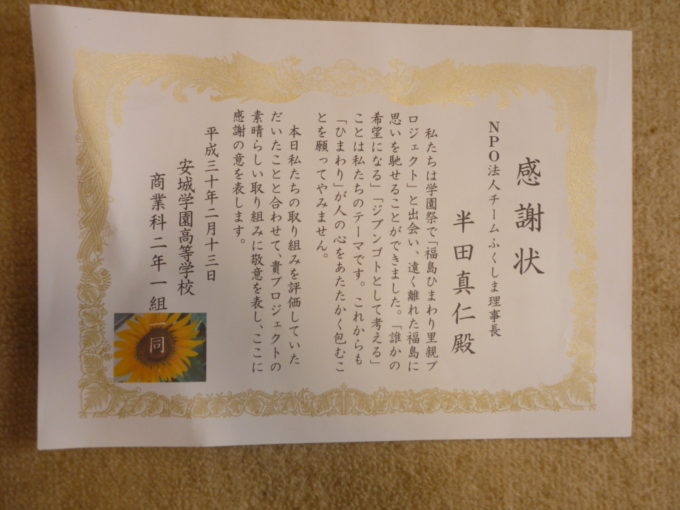 感謝状
NPO法人チームふくしま理事長
半田真仁殿
私たちは学園祭で「福島ひまわり里親プ
ロジェクト」と出会い、遠く離れた福島に
思いを馳せることができました。「誰かの
希望になる」「ジブンゴトとして考える」
ことは私たちのテーマです。これからも
「ひまわり」が人の心をあたたかく包むこ
とを願ってやみません。
本日私たちの取り組みを評価していた
だいたことと合わせて、貴プロジェクトの
素晴らしい取り組みに敬意を表し、ここに
感謝の意を表します。
平成三十年二月十三日
安城学園高等学校
商業科二年一組一同